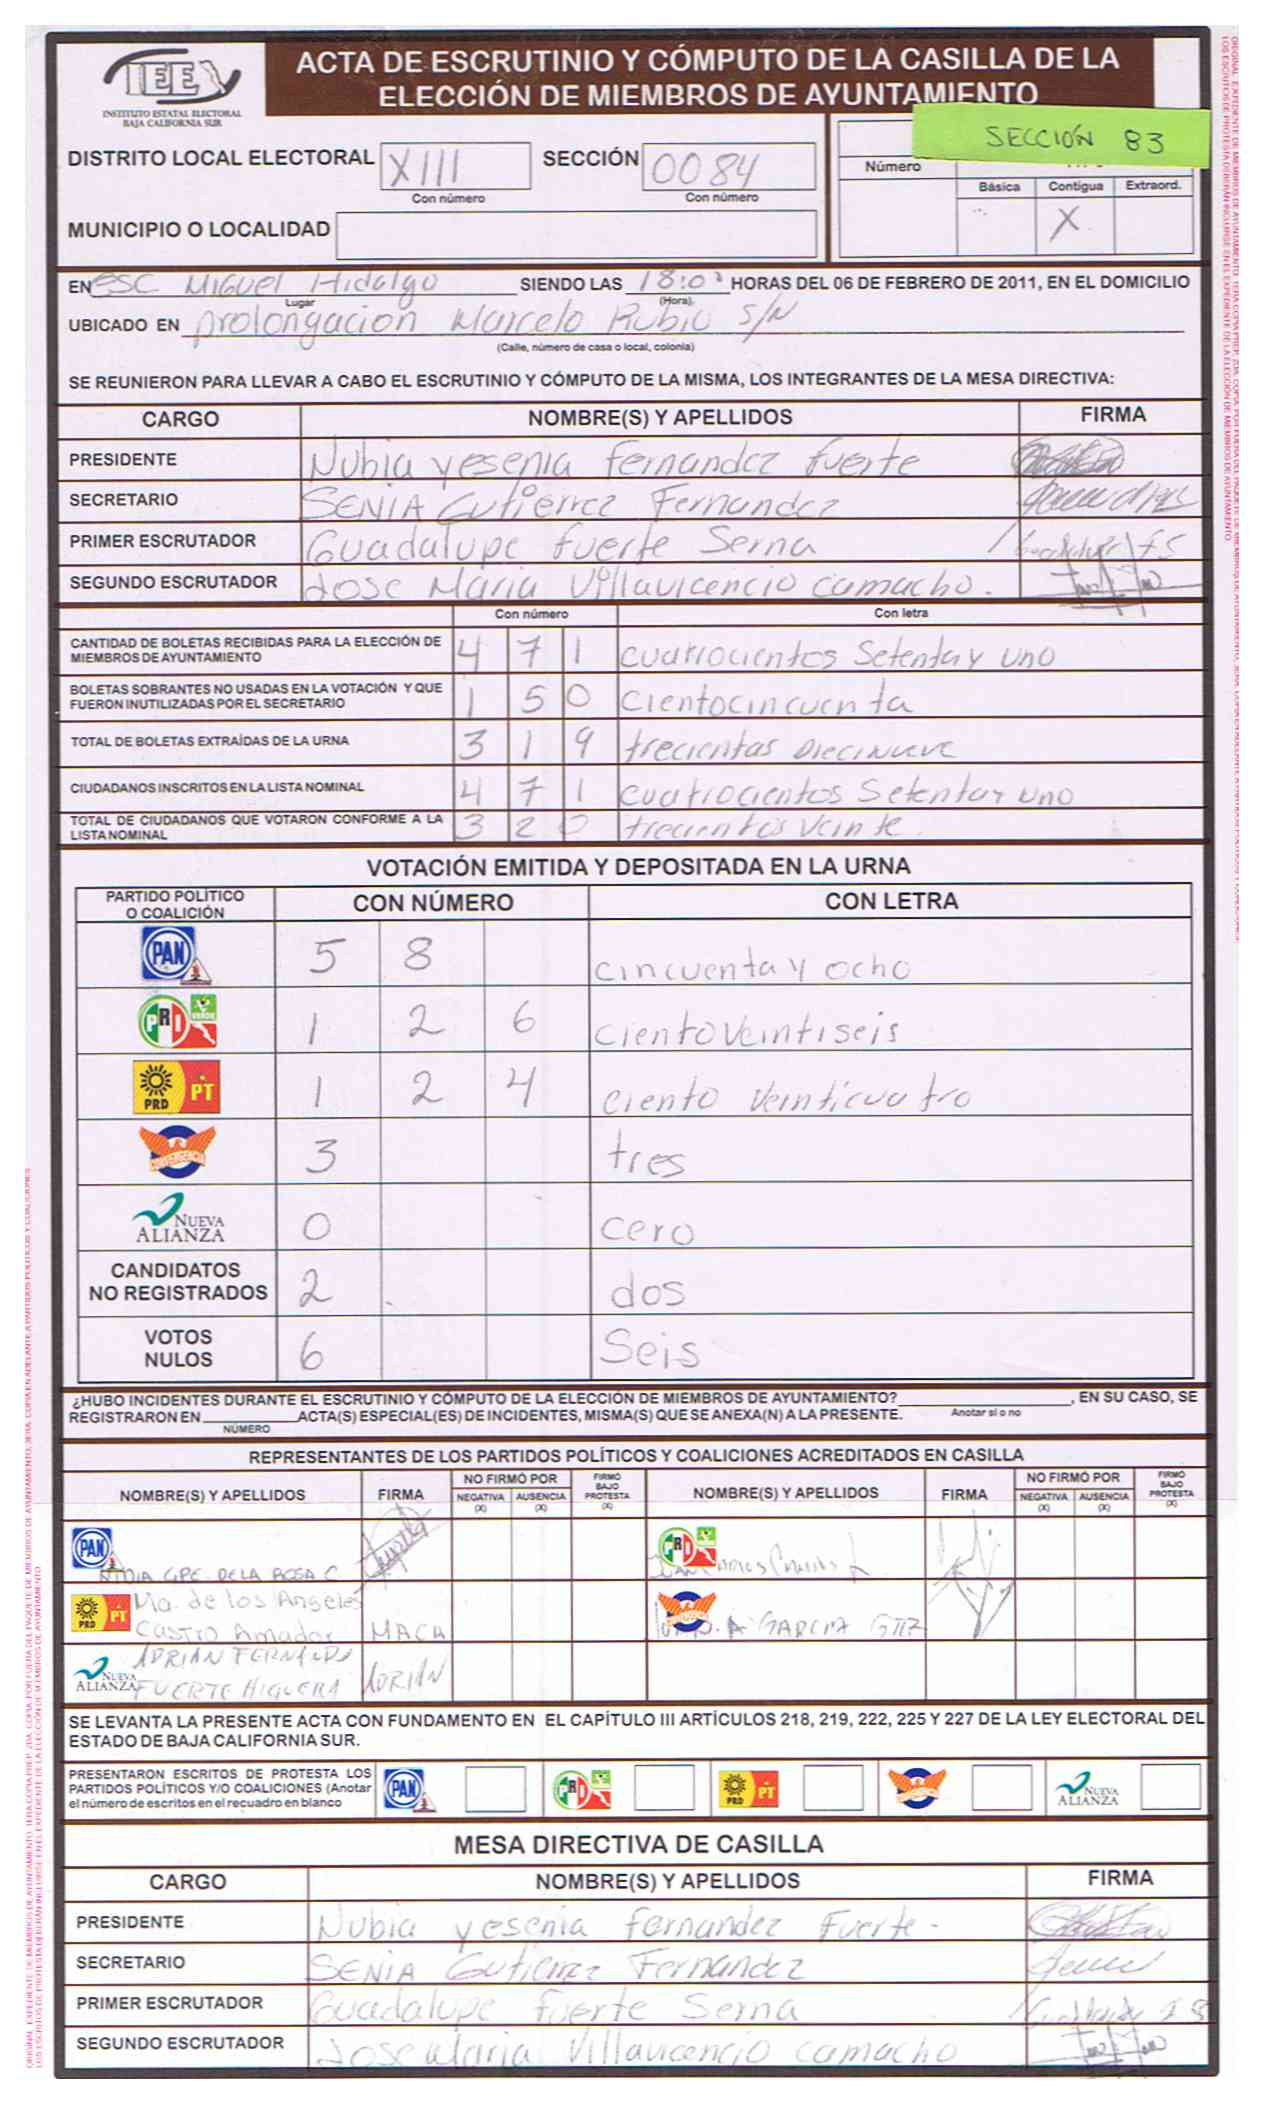 IEE
INSTITUTO ESTATAL ELECTORAL
BAJA CALIFORNIA SUR
ACTA DE ESCRUTINIO Y CÓMPUTO DE LA CASILLA DE LA
ELECCIÓN DE MIEMBROS DE AYUNTAMIENTO
SECCIÓN 83
DISTRITO LOCAL ELECTORAL XIII SECCIÓN 0084
Con número Con número
Número
Básica Contigua Extraord.
X
MUNICIPIO O LOCALIDAD
EN ESC Miguel Hidalgo SIENDO LAS 18:0 HORAS DEL 06 DE FEBRERO DE 2011, EN EL DOMICILIO
Lugar (Hora).
UBICADO EN prolongacion Marcelo Rubio S/N
(Calle, número de casa o local, colonia)
SE REUNIERON PARA LLEVAR A CABO EL ESCRUTINIO Y CÓMPUTO DE LA MISMA, LOS INTEGRANTES DE LA MESA DIRECTIVA:
CARGO NOMBRE(S) Y APELLIDOS FIRMA
PRESIDENTE Nubia yesenia fernandez fuerte
SECRETARIO SENIA Gutierrez Fernandez
PRIMER ESCRUTADOR Guadalupe fuerte Serna
SEGUNDO ESCRUTADOR Jose Maria Villavicencio camacho.
Con número Con letra
CANTIDAD DE BOLETAS RECIBIDAS PARA LA ELECCIÓN DE
MIEMBROS DE AYUNTAMIENTO 4 7 1 cuatrocientos Setenta y uno
BOLETAS SOBRANTES NO USADAS EN LA VOTACIÓN Y QUE
FUERON INUTILIZADAS POR EL SECRETARIO 1 5 0 cientocincuenta
TOTAL DE BOLETAS EXTRAÍDAS DE LA URNA 3 1 9 trecientas Diecinueve
CIUDADANOS INSCRITOS EN LA LISTA NOMINAL 4 7 1 cuatrocientos Setenta y uno
TOTAL DE CIUDADANOS QUE VOTARON CONFORME A LA
LISTA NOMINAL 3 2 0 trecientos veinte.
VOTACIÓN EMITIDA Y DEPOSITADA EN LA URNA
PARTIDO POLÍTICO
O COALICIÓN CON NÚMERO CON LETRA
PAN 5 8 cincuenta y ocho
PRI VERDE 1 2 6 ciento veintiseis
PRD PT 1 2 4 ciento veinticuatro
CONVERGENCIA 3 tres
NUEVA ALIANZA 0 cero
CANDIDATOS
NO REGISTRADOS 2 dos
VOTOS
NULOS 6 Seis
¿HUBO INCIDENTES DURANTE EL ESCRUTINIO Y CÓMPUTO DE LA ELECCIÓN DE MIEMBROS DE AYUNTAMIENTO? , EN SU CASO, SE
Anotar sí o no
REGISTRARON EN ACTA(S) ESPECIAL(ES) DE INCIDENTES, MISMA(S) QUE SE ANEXA(N) A LA PRESENTE.
NÚMERO
REPRESENTANTES DE LOS PARTIDOS POLÍTICOS Y COALICIONES ACREDITADOS EN CASILLA
NOMBRE(S) Y APELLIDOS FIRMA NO FIRMÓ POR NEGATIVA (X) AUSENCIA (X) FIRMÓ BAJO PROTESTA (X) NOMBRE(S) Y APELLIDOS FIRMA NO FIRMÓ POR NEGATIVA (X) AUSENCIA (X) FIRMÓ BAJO PROTESTA (X)
PAN GPE DE LA ROSA C PRI
PRD PT Ma. de los Angeles
Castro Amador MACA A GARCIA GTEZ
NUEVA ALIANZA ADRIAN FERNANDO
FUERTE HIGUERA ADRIAN
SE LEVANTA LA PRESENTE ACTA CON FUNDAMENTO EN EL CAPÍTULO III ARTÍCULOS 218, 219, 222, 225 Y 227 DE LA LEY ELECTORAL DEL
ESTADO DE BAJA CALIFORNIA SUR.
PRESENTARON ESCRITOS DE PROTESTA LOS
PARTIDOS POLÍTICOS Y/O COALICIONES (Anotar
el número de escritos en el recuadro en blanco
PAN PRI PRD PT NUEVA ALIANZA
MESA DIRECTIVA DE CASILLA
CARGO NOMBRE(S) Y APELLIDOS FIRMA
PRESIDENTE Nubia yesenia fernandez Fuerte
SECRETARIO SENIA Gutierrez Fernandez
PRIMER ESCRUTADOR Guadalupe fuerte Serna
SEGUNDO ESCRUTADOR Jose Maria Villavicencio camacho